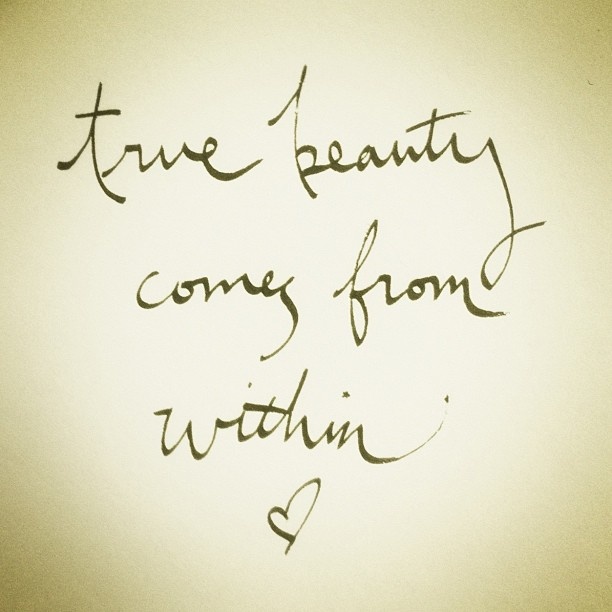 true beauty
comes from
within